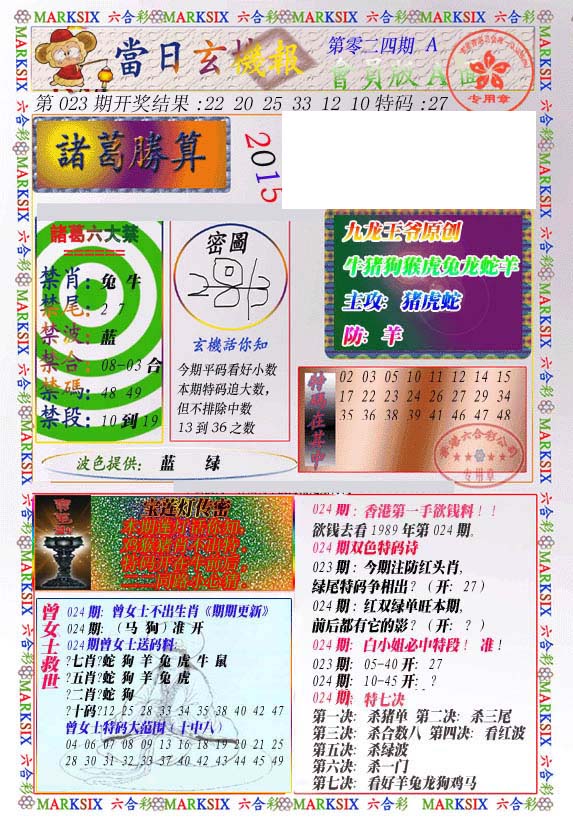 MARKSIX 六合彩 MARKSIX 六合彩 MARKSIX 六合彩 MARKSIX 六合彩
當日玄機報
第零二四期 A
會員版A面
专用章
第 023 期开奖结果 :22 20 25 33 12 10 特码 :27
諸葛勝算
2015
諸葛六大禁
禁肖: 兔 牛
禁尾: 2 7
禁波: 蓝
禁合: 08-03 合
禁碼: 48 49
禁段: 10 到 19
密圖
玄機話你知
今期平码看好小数
本期特码追大数,
但不排除中数
13 到 36 之数
九龙王爷原创
牛猪狗猴虎兔龙蛇羊
主攻: 猪虎蛇
防: 羊
特码在其中
02 03 05 10 11 12 14 15
17 22 23 24 26 27 29 34
35 36 38 39 41 46 47 48
香港六合彩公司
专用章
波色提供: 蓝 绿
宝莲灯传密
本期莲灯话你知,
特码开在午前后,
曾女士救世
024 期: 曾女士不出生肖《期期更新》
024 期: (马 狗) 准 开
024期曾女士送码料:
?七肖?蛇 狗 羊 兔 虎 牛 鼠
?五肖?蛇 狗 羊 兔 虎
?二肖?蛇 狗
?十码?12 25 28 33 34 35 38 40 42 47
曾女士特码大范围 (十中八)
04 06 07 08 09 13 16 18 19 20 21 25
28 30 31 32 33 37 40 42 43 44 45 49
024 期: 香港第一手欲钱料!!
欲钱去看 1989 年第 024 期。
024 期双色特码诗
023 期: 今期注防红头肖,
绿尾特码争相出? (开: 27)
024 期: 红双绿单旺本期,
前后都有它的影? (开: ?)
024 期: 白小姐必中特段! 准!
023 期: 05-40 开: 27
024 期: 10-45 开: ?
024 期: 特七决
第一决: 杀猪单 第二决: 杀三尾
第三决: 杀合数八 第四决: 看红波
第五决: 杀绿波
第六决: 杀一门
第七决: 看好羊兔龙狗鸡马
MARKSIX 六合彩 MARKSIX 六合彩 MARKSIX 六合彩 MARKSIX 六合彩